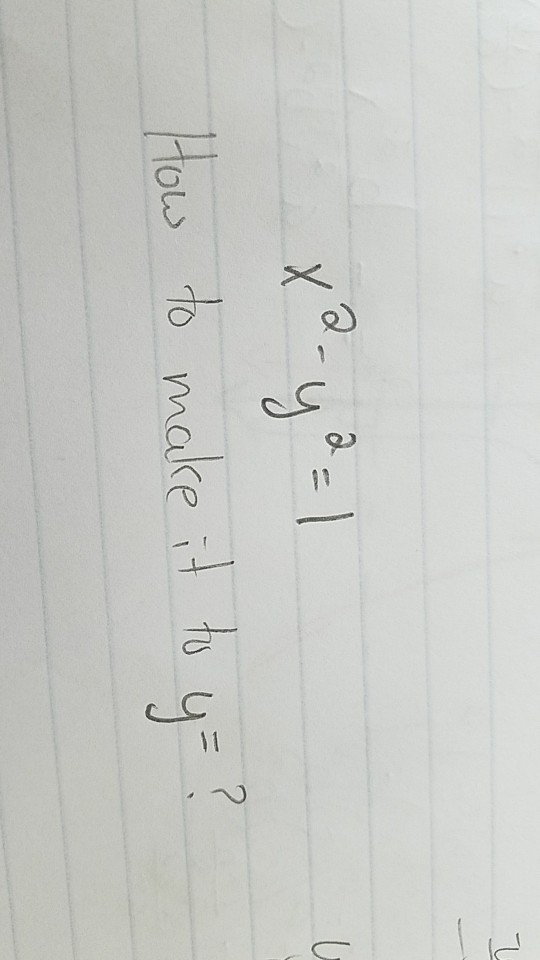 x² - y² = 1
How to make it to y = ?